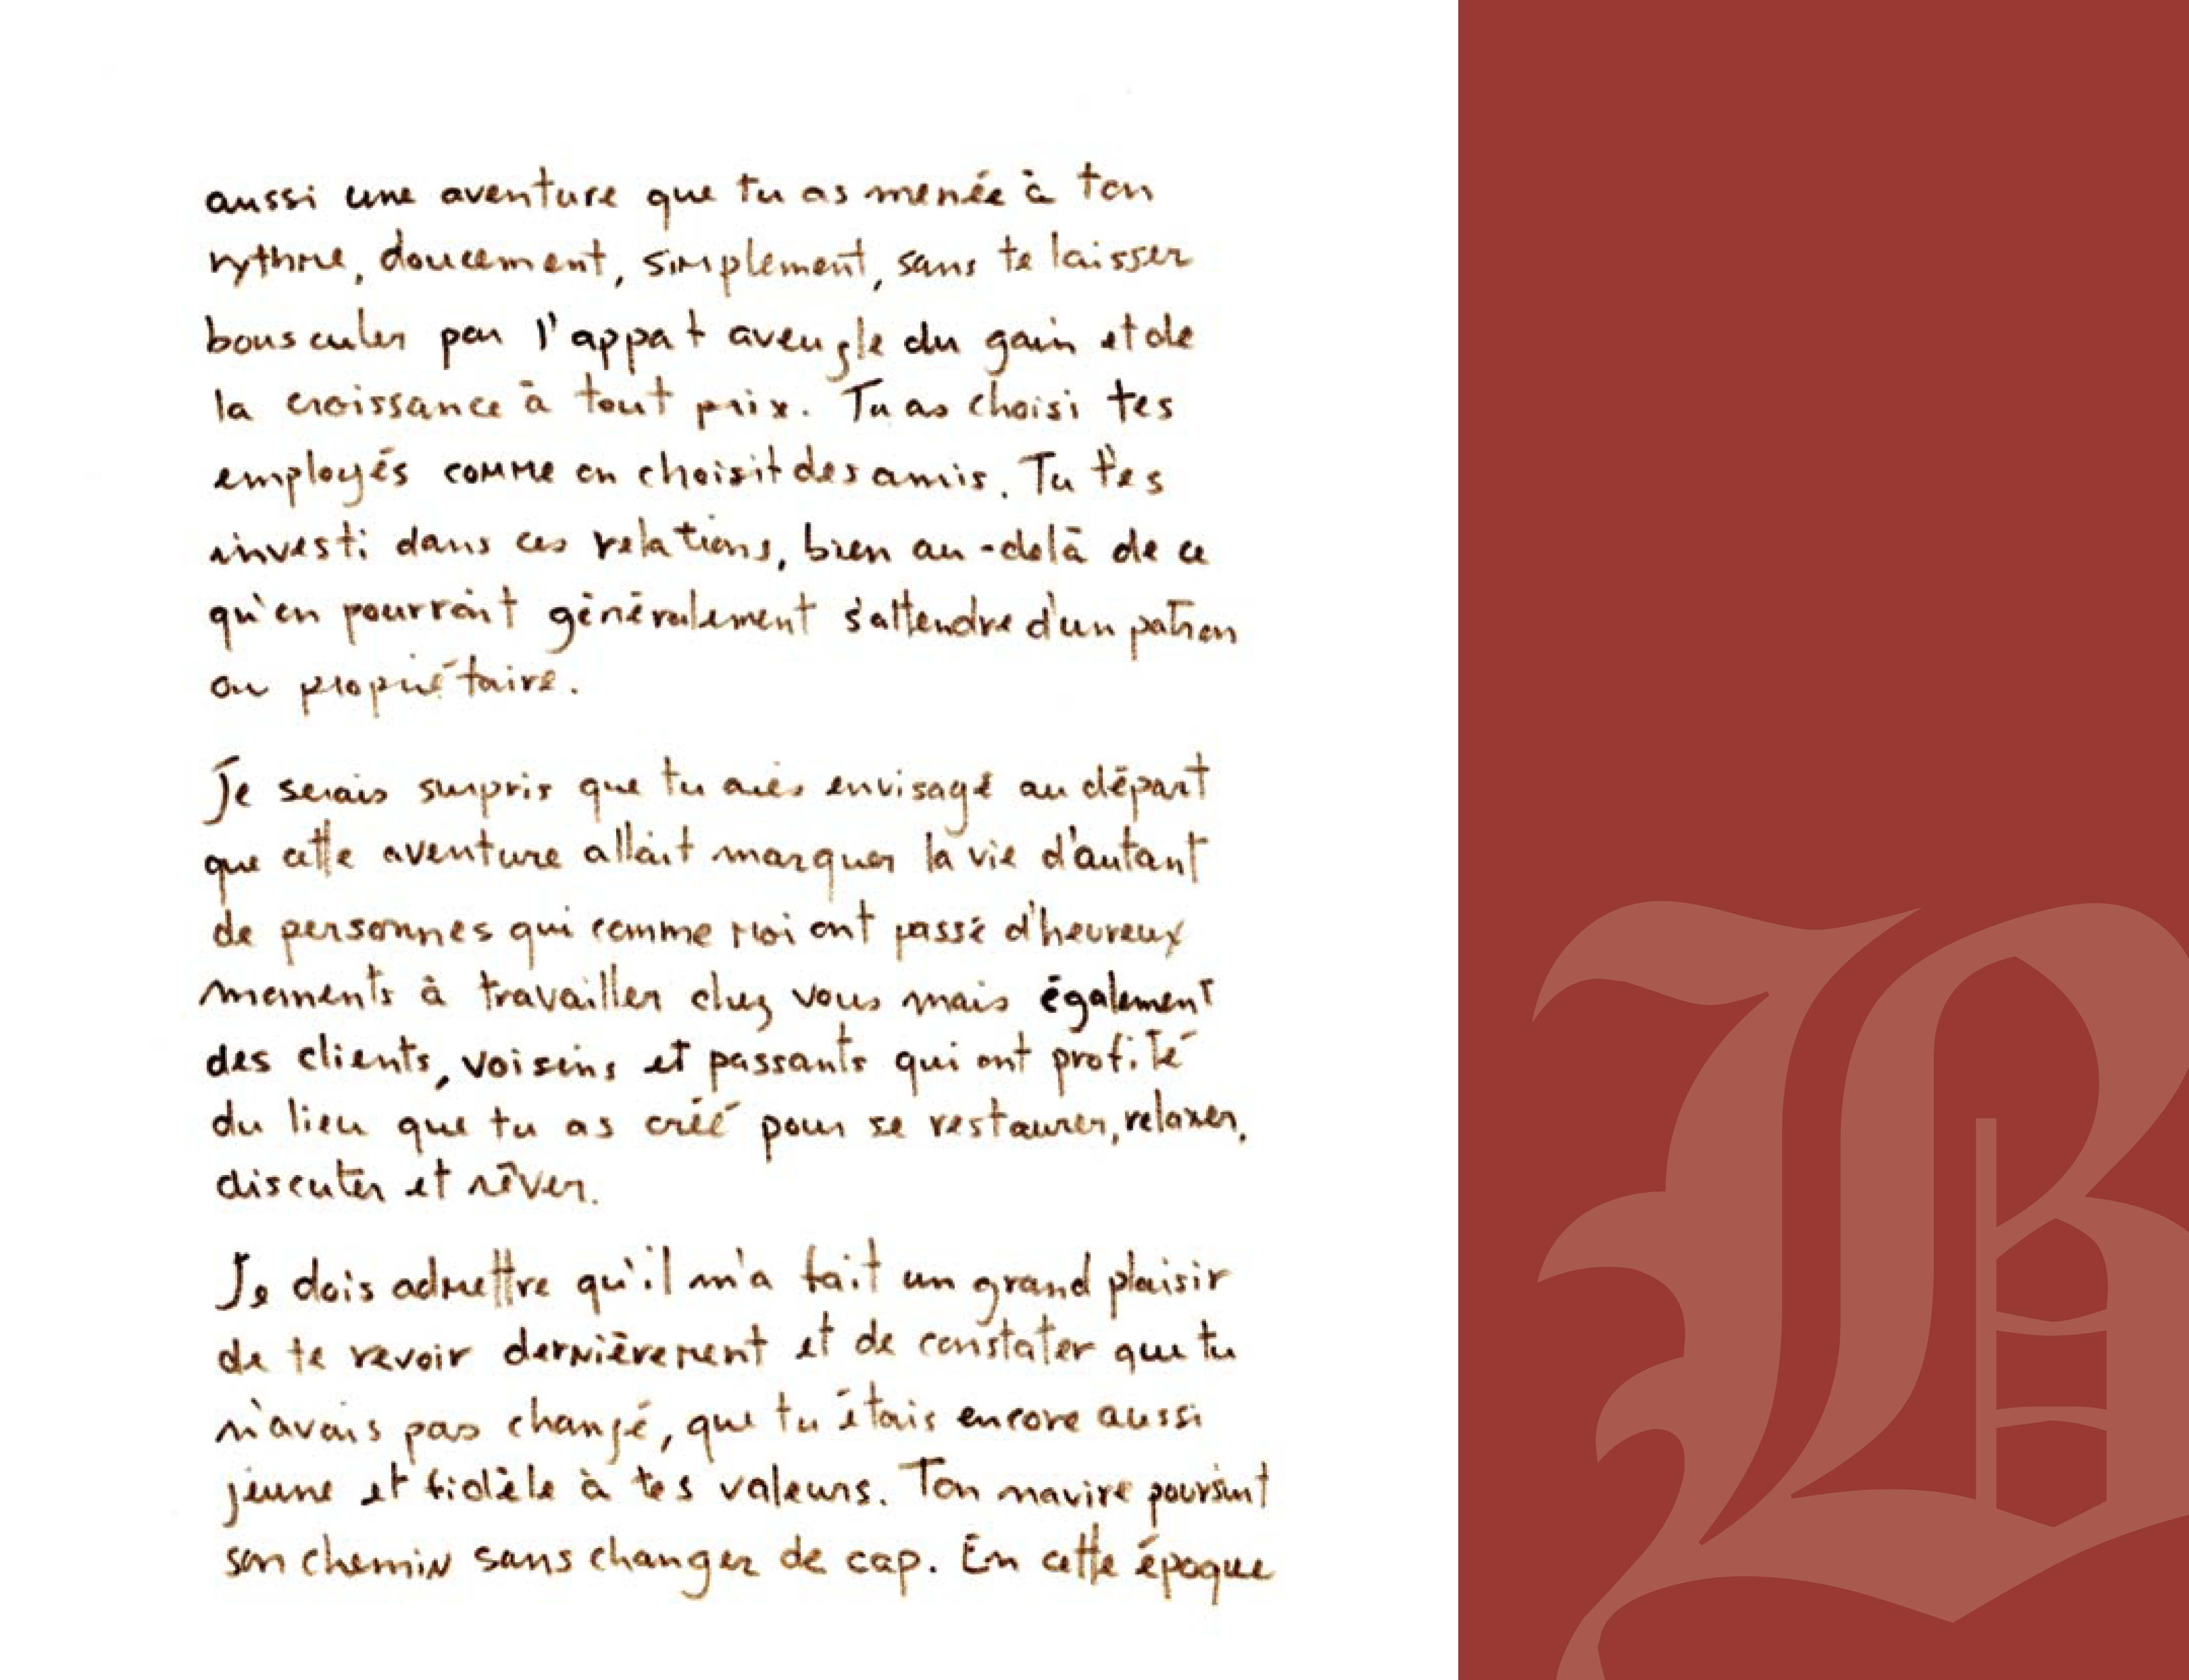 aussi une aventure que tu as menée à ton
rythme, doucement, simplement, sans te laisser
bousculer par l'appat aveugle du gain et de
la croissance à tout prix. Tu as choisi tes
employés comme on choisit des amis. Tu t'es
investi dans ces relations, bien au-delà de ce
qu'on pourrait généralement s'attendre d'un patron
ou propriétaire.
Je serais surpris que tu aies envisagé au départ
que cette aventure allait marquer la vie d'autant
de personnes qui comme moi ont passé d'heureux
moments à travailler chez vous mais également
des clients, voisins et passants qui ont profité
du lieu que tu as créé pour se restaurer, relaxer,
discuter et rêver.
Je dois admettre qu'il m'a fait un grand plaisir
de te revoir dernièrement et de constater que tu
n'avais pas changé, que tu étais encore aussi
jeune et fidèle à tes valeurs. Ton navire poursuit
son chemin sans changer de cap. En cette époque
B